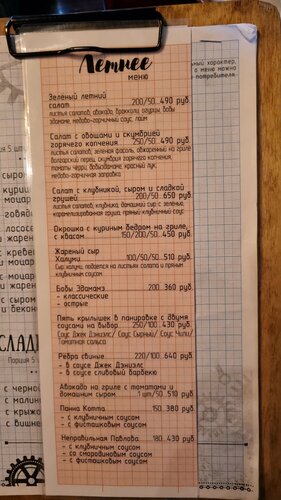 Летнее
меню
Зелёный летний
салат 200/50...490 руб.
листья салатов, авокадо, брокколи, огурцы, бобы
эдамаме, медово-горчичный соус, лайм
Салат с овощами и скумбрией
горячего копчения 250/50..490 руб.
листья салатов, зелёная фасоль, обжаренный на гриле
болгарский перец, скумбрия горячего копчения,
томаты черри, вяленый красный лук,
медово-горчичная заправка
Салат с клубникой, сыром и сладкой
грушей 200/50..650 руб.
листья салатов, клубника, домашний сыр с зеленью,
карамелизированная груша, пряный клубничный соус
Окрошка с куриным бедром на гриле,
с квасом 150/200/50...450 руб.
Жареный сыр
Халуми 100/50/50...510 руб.
Сыр халуми, подается на листьях салата и пряным
клубничным соусом
Бобы Эдамамэ 200..360 руб.
- классические
- острые
Пять крылышек в панировке с двумя
соусами на выбор 250/100..430 руб.
Соус Джек Дэниэлс/ Соус Сырный/ Соус Чили/
Томатная сальса
Рёбра свиные 220/100..640 руб.
- в соусе Джек Дэниэлс
- в соусе сливовый барбекю
Авокадо на гриле с томатами и
домашним сыром 1 шт/50..510 руб.
Панна Котта 150..380 руб.
- с клубничным соусом
- с фисташковым соусом
Неправильная Павлова 180..430 руб.
- с клубничным соусом
- со смородиновым соусом
- с фисташковым соусом